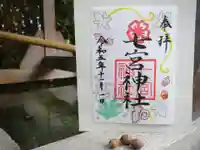 奉拝
七宮神社
令和五年十二月一日